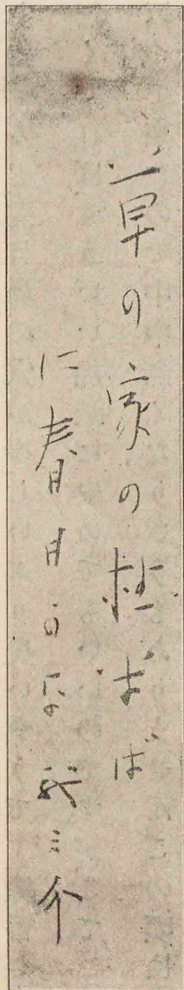 草の家の柱半ば
に春日かな 龍之介